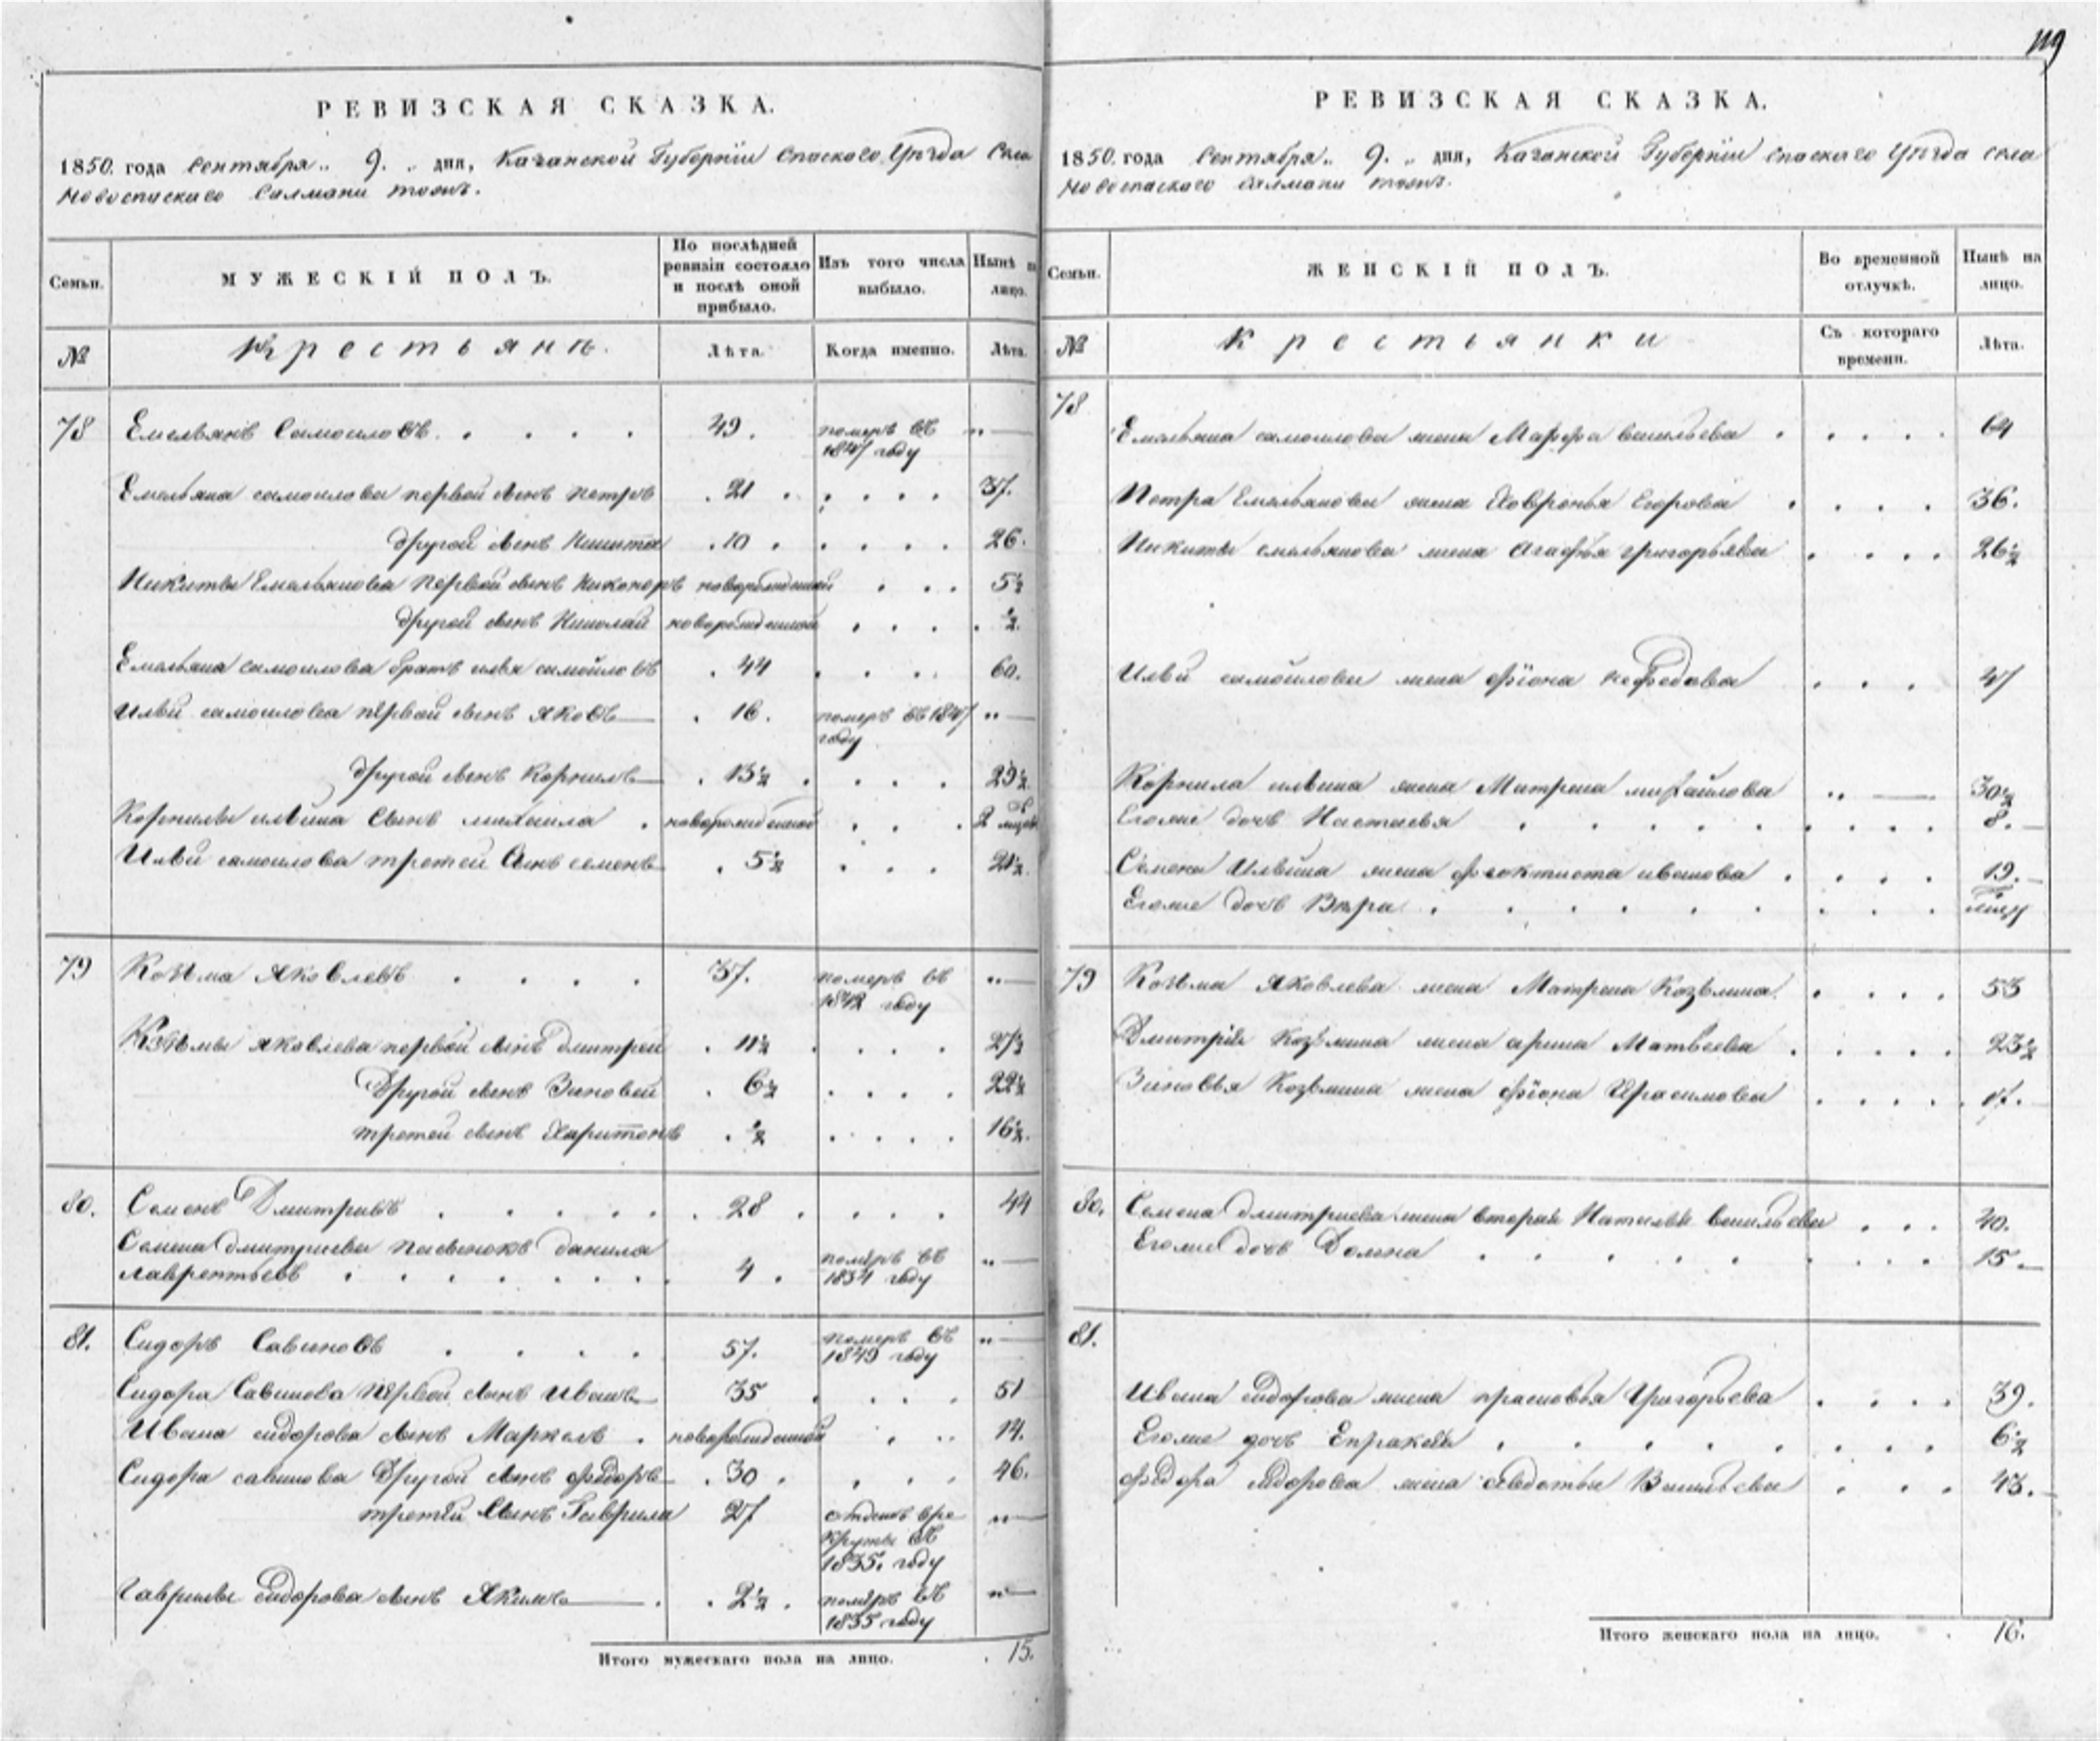 119
РЕВИЗСКАЯ СКАЗКА.
1850. года Сентября „ 9. „ дня, Казанской Губерніи Спаскаго Уѣзда Села
Новоспаскаго Салмани тожъ.
Семьи.
МУЖЕСКІЙ ПОЛЪ.
По послѣдней ревизіи состояло и послѣ оной прибыло.
Изъ того числа выбыло.
Нынѣ на лицо.
№
Крестьянъ.
Лѣта.
Когда именно.
Лѣта.
78 Емельянъ Самойловъ . . . . 49. померъ въ 1847 году „ —
Емельяна самойлова первой сынъ Петръ . 21 . . . . . 37.
другой сынъ Никита . 10 . . . . . 26.
Никиты Емельянова первой сынъ Никоноръ новорожденной . . . 5½
другой сынъ Николай новорожденной . . . . ½.
Емельяна самойлова братъ илья самойловъ . 44 . . . . 60.
Ильи самойлова первой сынъ яковъ — . 16. померъ въ 1847 году „ —
другой сынъ Корнилъ — . 13½ . . . . 29½
Корнилы ильина сынъ михаила . новорожденной . . . 2
Ильи самойлова третей сынъ семенъ . 5½ . . . 21½.
79 Козьма Яковлевъ . . . . 37. померъ въ 1842 году „ —
Козьмы яковлева первой сынъ дмитрей . 11½ . . . . 27½
Другой сынъ Зиновей . 6½ . . . . 22½
третей сынъ Харитонъ . ½ . . . . 16½.
80. Семенъ Дмитривъ . . . . . . 28 . . . . 44
Семена дмитриева пасынокъ данила
лаврентьевъ . . . . . . . 4 . померъ въ 1834 году „ —
81. Сидоръ Савиновъ . . . . 57. померъ въ 1849 году „ —
Сидора Савинова первой сынъ Иванъ 35 . . . . 51
Ивана сидорова сынъ Маркелъ . новорожденной . . . 14.
Сидора савинова Другой сынъ федоръ . 30 . . . . 46.
третей сынъ Гаврила 27 отданъ в рекруты въ 1835. году „ —
Гаврилы сидорова сынъ Якимъ — . . 2½ . померъ въ 1835 году „ —
Итого мужескаго пола на лицо. . 15.
РЕВИЗСКАЯ СКАЗКА.
1850. года Сентября „ 9. „ дня, Казанской Губерніи Спаскаго Уѣзда села
Новоспаскаго Салмани тожъ.
Семьи.
ЖЕНСКІЙ ПОЛЪ.
Во временной отлучкѣ.
Нынѣ на лицо.
№
Крестьянки
Съ котораго времени.
Лѣта.
78
Емельяна самойлова жена Марфа васильева . . . . . 64
Петра Емельянова жена Хавронья Егорова . . . . 36.
Никиты емельянова жена Агафья григорьева . . . . 26½
Ильи самойлова жена фіона нефедова . . . 47
Корнила ильина жена Матрена михайлова „ — 30½
Егоже дочь Настасья . . . . . . . . 8. —
Семена Ильина жена феоктиста иванова . . . . 19. —
Егоже дочь Вѣра . . . . . . . . .
79 Козьма Яковлева жена Матрена Козьмина . . . . 53
Дмитрія Козьмина жена арина Матвеева . . . . . 23½
Зиновья Козьмина жена фіона Ирасимова . . . . 17.
80. Семена дмитриева жена вторая Наталья васильева . . . 40.
Егоже дочь Домна . . . . . . . . 15. —
81.
Ивана сидорова жена прасковья Григорьева . . . . 39.
Егоже дочь Епраксія . . . . . . . . 6½
федора сидорова жена авдотья Васильева . . . 43. —
Итого женскаго пола на лицо. . 16.